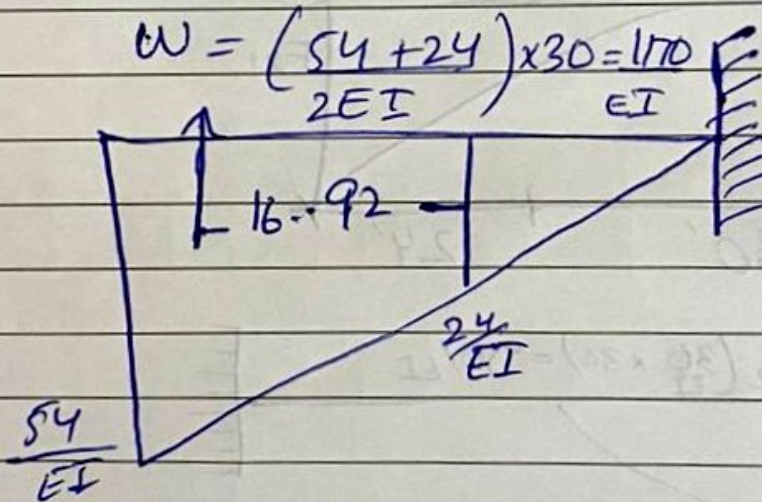 W = (54 + 24 / 2EI) x 30 = 1170 / EI
16.92
24/EI
54/EI